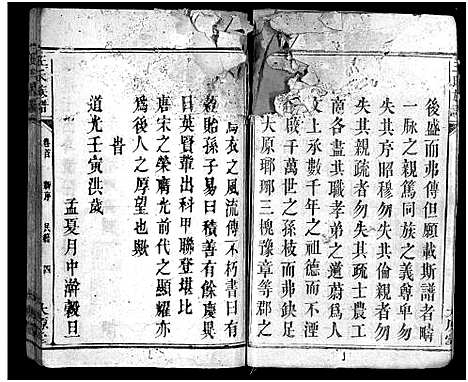 後盛而弗傳但願載斯譜者疇
一脉之親篤同族之義尊卑勿
失其序昭穆勿失其倫親者勿
失其親疏者勿失其疏士農工
各盡其職孝弟之道蔚為人
文上承數千年之祖德而不湮
啟千萬世之孫枝而弗缺是
大原瑯琊三槐豫章等郡之
烏衣之風流傳不朽書曰
貽孫子易曰積善有餘慶異
日英賢章出科甲聯登堪比
唐宋之榮膺光前代之顯耀亦
為後人之厚望也歟
時
道光壬寅洪歲
孟夏月中澣穀旦
王氏族譜
卷首
新序
民籍
四
大原堂